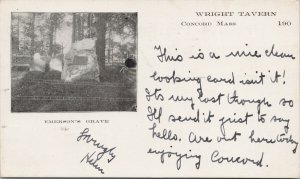 WRIGHT TAVERN
CONCORD MASS 190
This is a nice clean
looking card isn't it!
Its my last though so
I'll send it just to say
hello. Are out here today
enjoying Concord.
EMERSON'S GRAVE
Lovingly